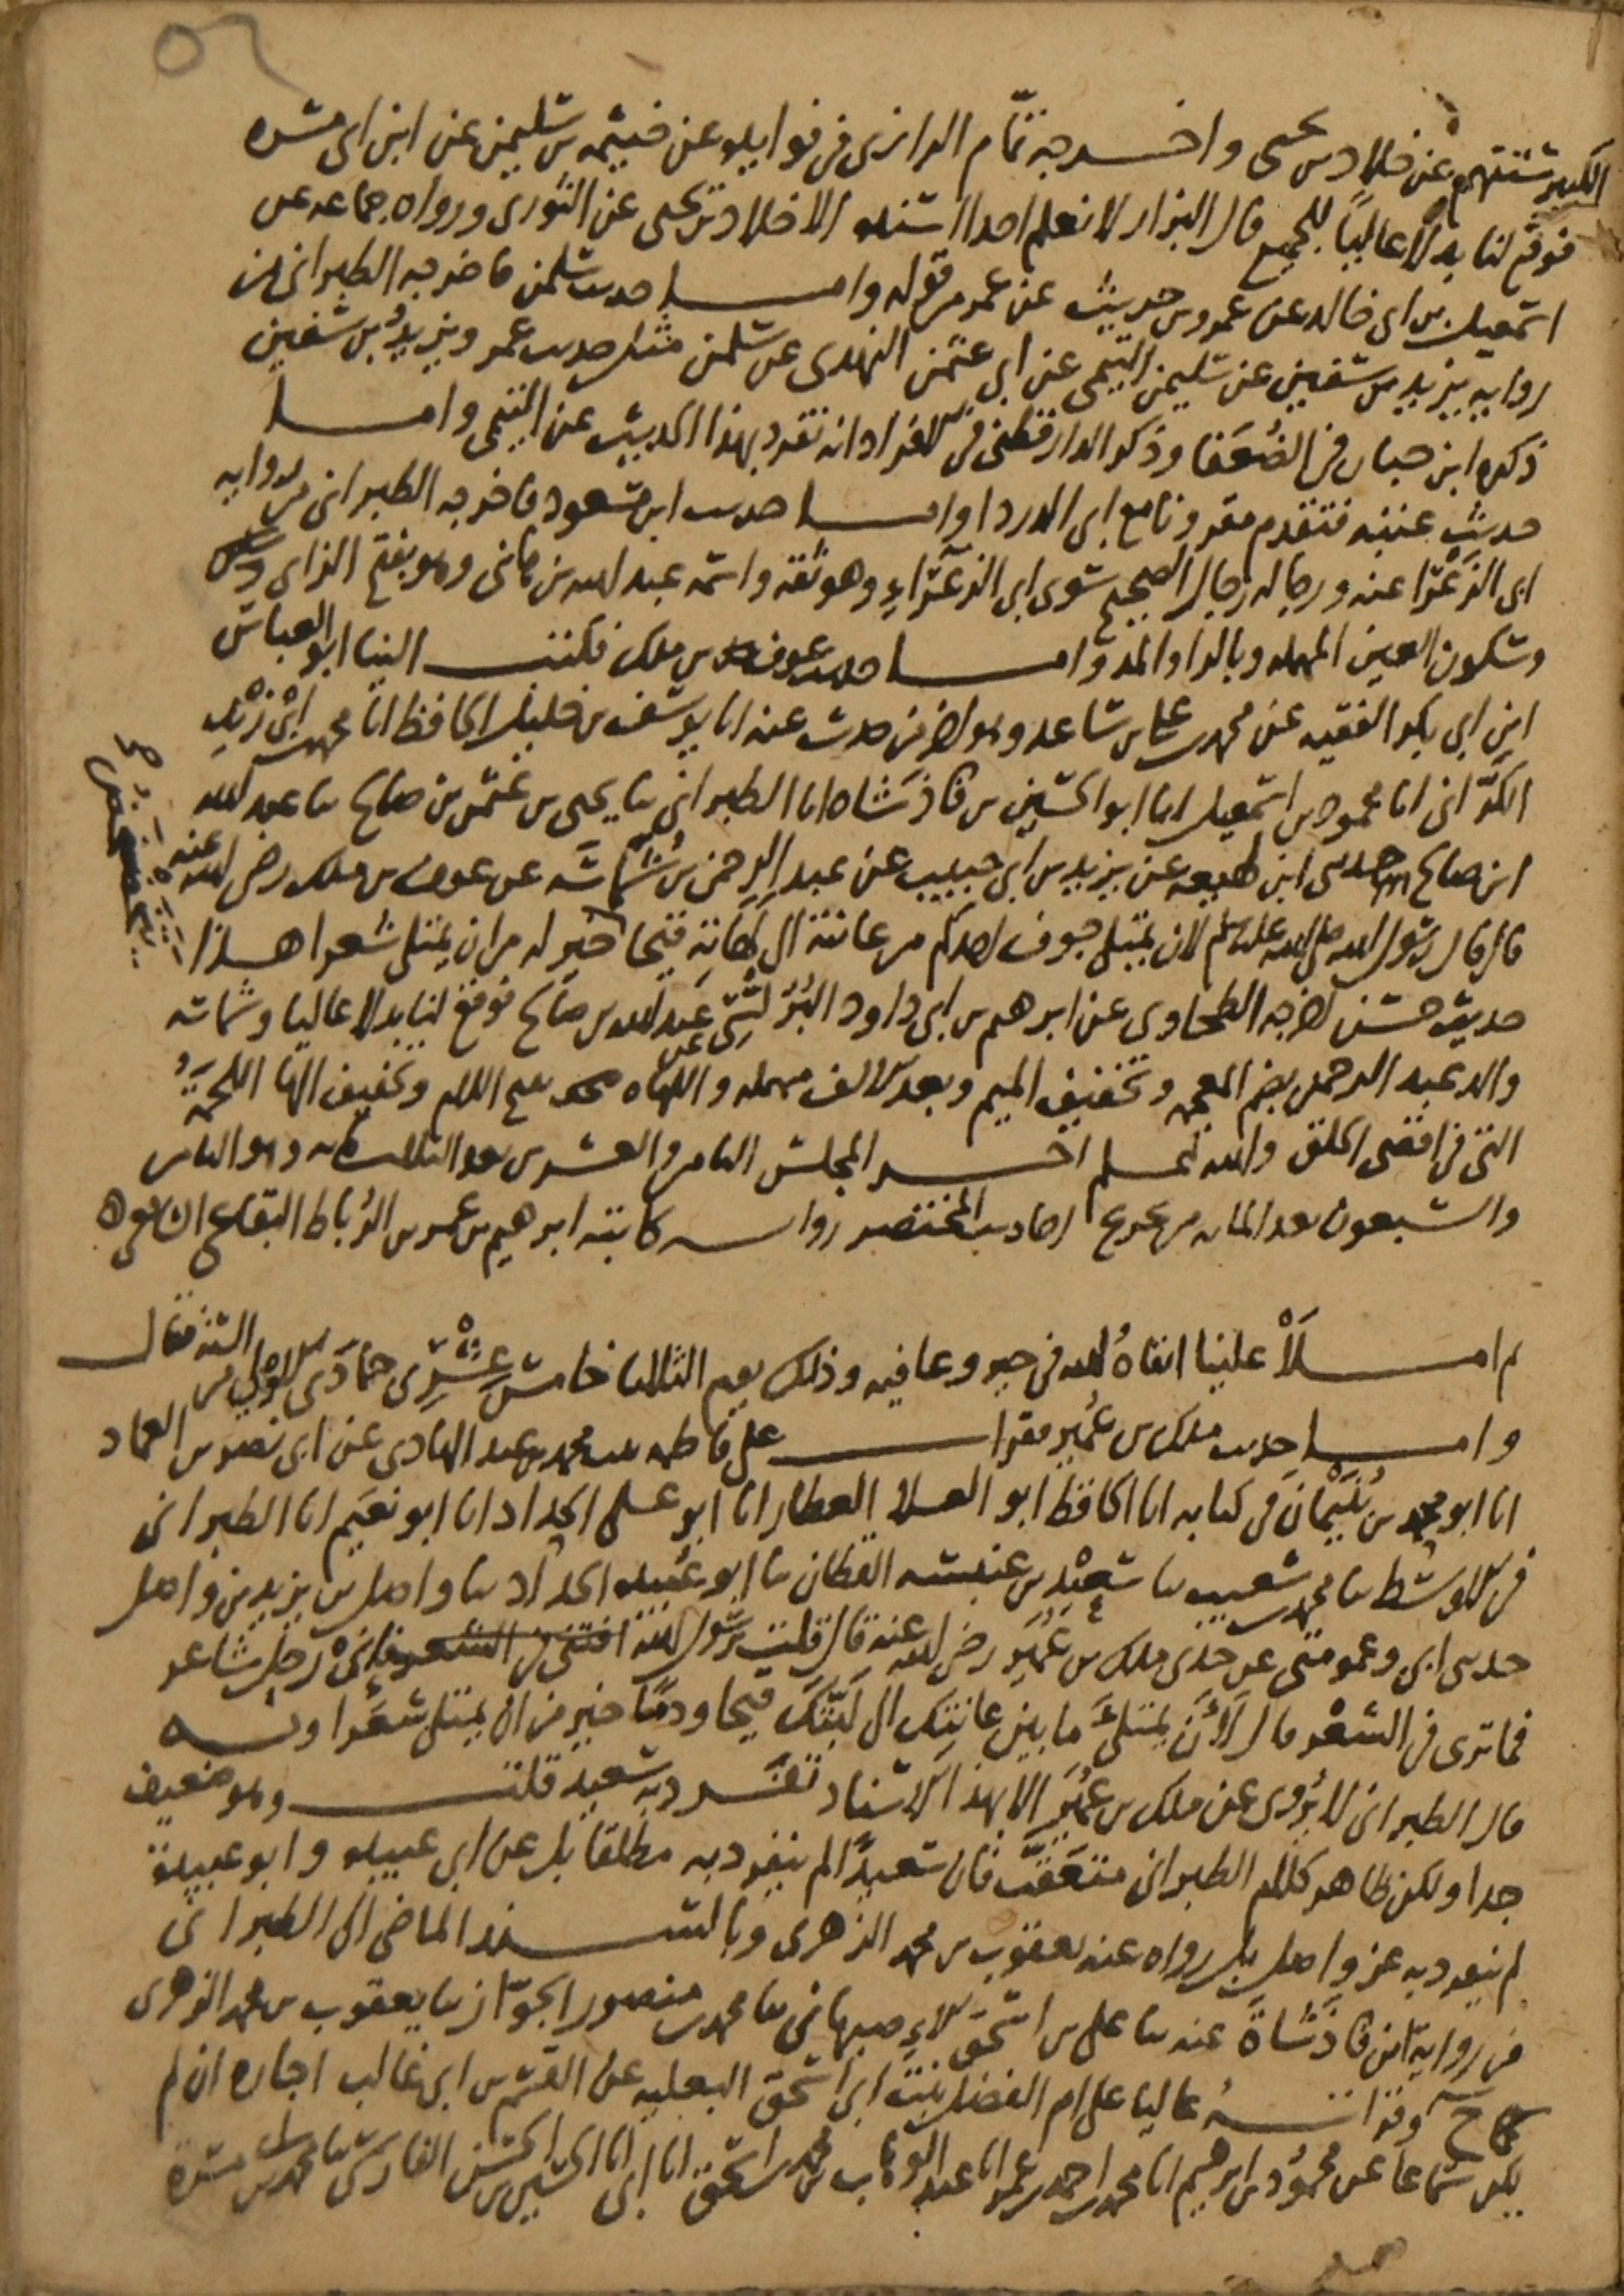 ٥٢
الكبير ستتهم عن خلاد بن يحيى واخرجه تمّام الرازى فى فوايده عن خيثمه بن سليمن عن ابن ابى مسره
فوقع لنا بدلًا عاليًا للجميع قال البزار لا نعلم احدا اسنده الا خلاد بن يحيى عن الثورى ورواه جماعه عن
اسمعيل بن ابى خالد عن عمرو بن حريث عن عمر من قوله واما حديث سلمن فاخرجه الطبرانى من
روايه يزيد بن سفين عن سليمن التيمى عن ابى عثمن النهدى عن سلمن مثل حديث عمر ويزيدُ بن سفين
ذكره ابن حبان فى الضُعَفا وذكر الدارقطنى فى الافراد انه تفرد بهذا الحديث عن التيمى واما
حديث عتبه فتقدم مقرونا مع ابى الدردا واما حديث ابن مسعود فاخرجه الطبرانى من روايه
ابى الزَعْرا عنه ورجاله رجال الصحيح سوى ابى الزعْرَاءِ وهو ثقه واسمه عبد الله بن هانى وهو بفتح الزاى
وسكون العين المهمله وبالرا والمد واما حديث عوف بن ملك فكتب الينا ابو العباس
ابن ابى بكر الفقيه عن محمد بن على بن ساعد وهو اخر من حدث عنه انا يوسف بن خليل الحافظ انا محمد بن ابى زيْدٍ
الكَرّانى انا محمود بن اسمعيل انا ابو الحسين بن فاذشَاه انا الطبرانى ثنا يحيى بن عثمن بن صالح ثنا عبد الله
ابن صالح حدثنى ابن لهيعه عن يزيد بن ابى حبيب عن عبد الرحمن بن شُمَاسَه عن عوف بن ملك رضى الله عنه
قال قال رسول الله صلى الله عليه وسلم لان يمتلى جوف احدكم من عانته الى لَهَاتِه قيحا خير له من ان يمتلى شعرا هذا
حديث حسن اخرجه الطحاوى عن ابرهيم بن ابى داود البُرُلُّسِىّ عن عبد الله بن صالح فوقع لنا بدلا عاليا وشماسه
والد عبد الرحمن بضم المعجمه وتخفيف الميم وبعد الالف مهمله واللهاه بفتح اللام وتخفيف الها اللحمَةُ
التى فى اقصى الحلق والله اعلم اخر المجلس الثامن والعشرين بعد الثلاث مائه وهو الثامن
والسبعون بعد المائه من تخريج احاديث المختصر روايه كاتبه ابرهيم بن عمر بن الرُباط البقاعى
م املَأَ علينا ابقاهُ الله فى خير وعافيه وذلك يوم الثلاثا خامس عِشْرِى جمادَى الاولى من السنه فقال
واما حديث ملك بن عُمَيرٍ فقرات على فاطمه بنت محمد بن عبد الهادى عن ابى نصر بن العماد
انا ابو محمد بن بُنَيْمَانَ فى كتابه انا الحافظ ابو العلا العطار انا ابو على الحداد انا ابو نعَيم انا الطبرانى
فى الاوسط ثنا محمد بن شعيب ثنا سَعِيْد بن عنبسه القطان ثنا ابو عُبيده الحدَّاد ثنا واصل بن يزيد بن واصل
حدثنى ابى وعمومتى عن جدى ملك بن عُمَيرٍ رضى الله عنه قال قلت يرسول الله افتنى فى الشعر فإنىْ رجل شاعر
فما ترى فى الشعْر قال لَأَنْ يمتلئَ ما بين عانتِكَ الى لَبَّتِكَ قيحا ودمًا خير من ان يمتلى شعَرا وبه
قال الطبرانى لا يُرْوى عن ملك بن عُمَيرٍ الا بهذا الاسناد تفَرد به سَعيد قلت وهو ضعيف
جدا ولكن ظاهر كلام الطبرانى متَعَقّب فان سَعيدًا لم ينفرد به مطلقا بل عن ابى عبيده وابو عبيدة
لم ينفرد به عن واصل بل رواه عنه يعقوب بن محمد الزهرى وبالسند الماضى الى الطبرانى
فى رواية ابن فاذَشَاهَ عنه ثنا على بن اسحق الاصبهانى ثنا محمد بن منصور الجَوّاز ثنا يعقوب بن محمد الزهرى
ح وقراته عاليا على ام الفضل بنت ابى اسحق البعلبه عن القسم بن ابى غالب اجازه ان لم
يكن سَماعًا عن محمُود بن ابرهيم انا محمد بن احمد بن عمر انا عبد الوهاب بن محمد بن اسحق انا ابى انا الحسين بن الحسن الفارسى ثنا محمد بن مسرة